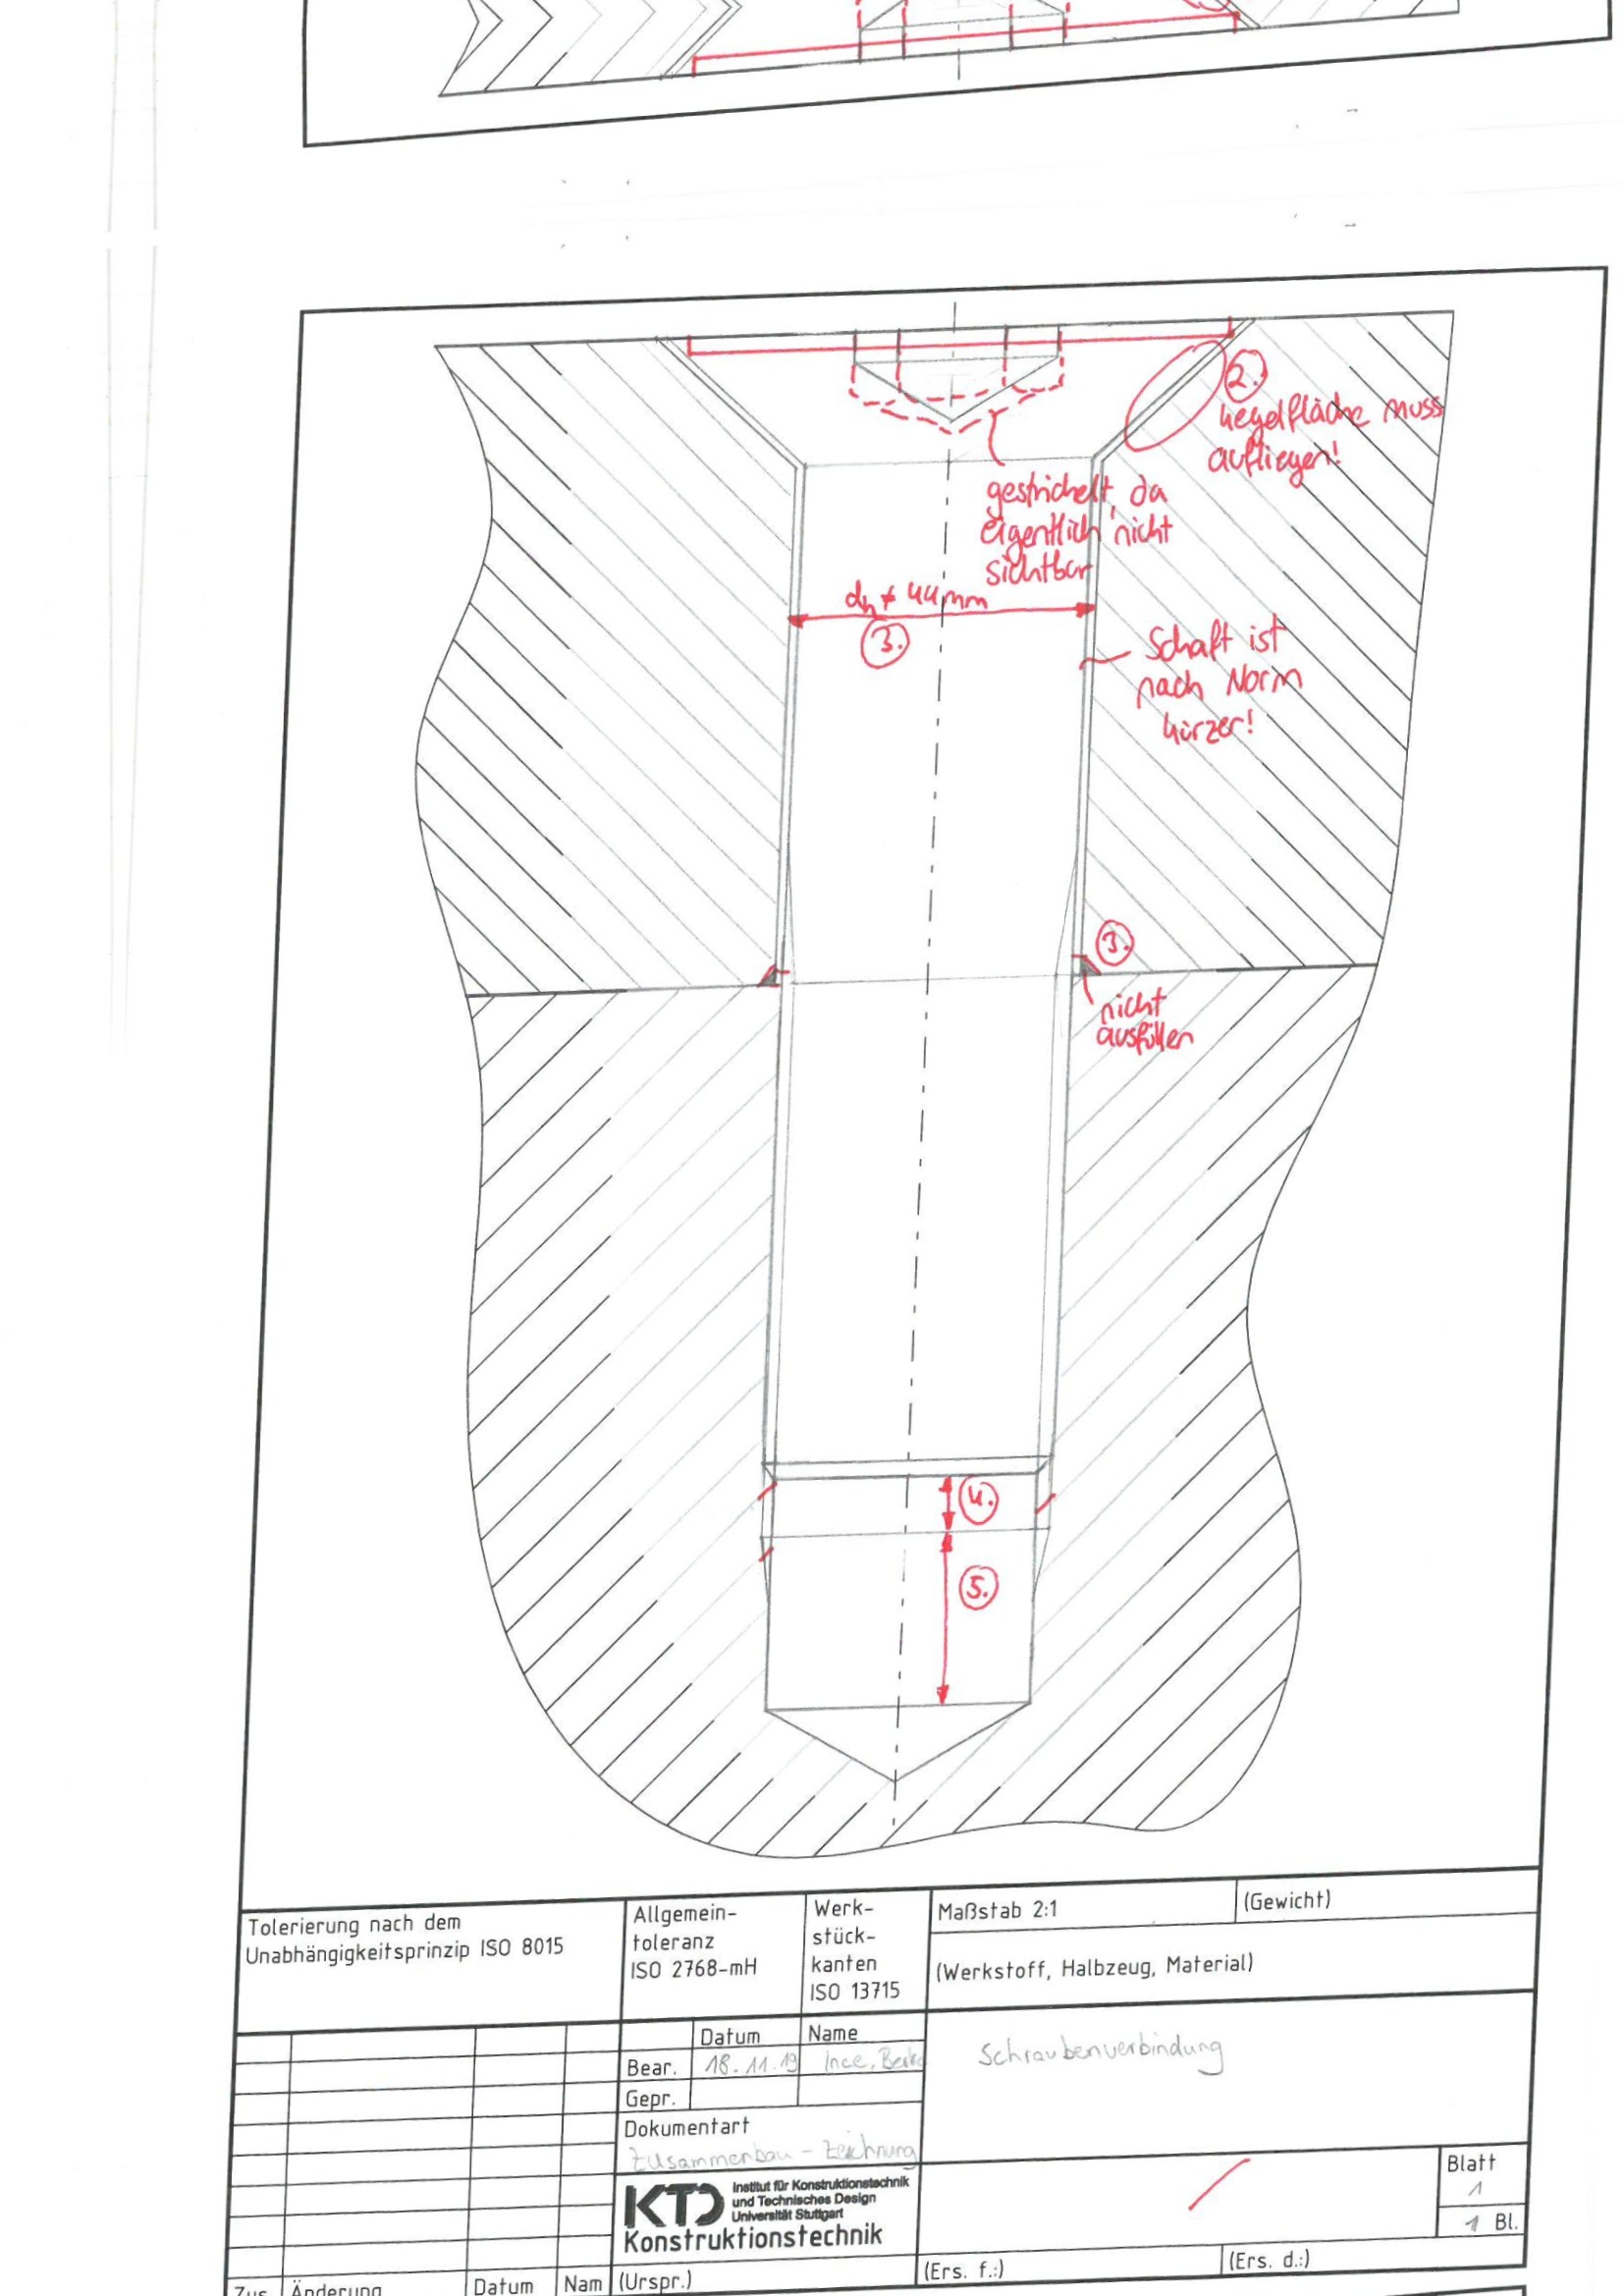 2.
Kegelfläche muss
aufliegen!
gestrichelt, da
eigentlich nicht
sichtbar
dh ≠ 44mm
3.
Schaft ist
nach Norm
kürzer!
3.
nicht
ausfüllen
4.
5.
Tolerierung nach dem
Unabhängigkeitsprinzip ISO 8015
Allgemein-
toleranz
ISO 2768-mH
Werk-
stück-
kanten
ISO 13715
Maßstab 2:1
(Gewicht)
(Werkstoff, Halbzeug, Material)
Datum
Name
Bear.
18.11.19
Ince,
Gepr.
Schraubenverbindung
Dokumentart
Zusammenbau-Zeichnung
KTD
Institut für Konstruktionstechnik
und Technisches Design
Universität Stuttgart
Konstruktionstechnik
Blatt
1
1 Bl.
Zus. Änderung
Datum
Nam
(Urspr.)
(Ers. f.:)
(Ers. d.:)